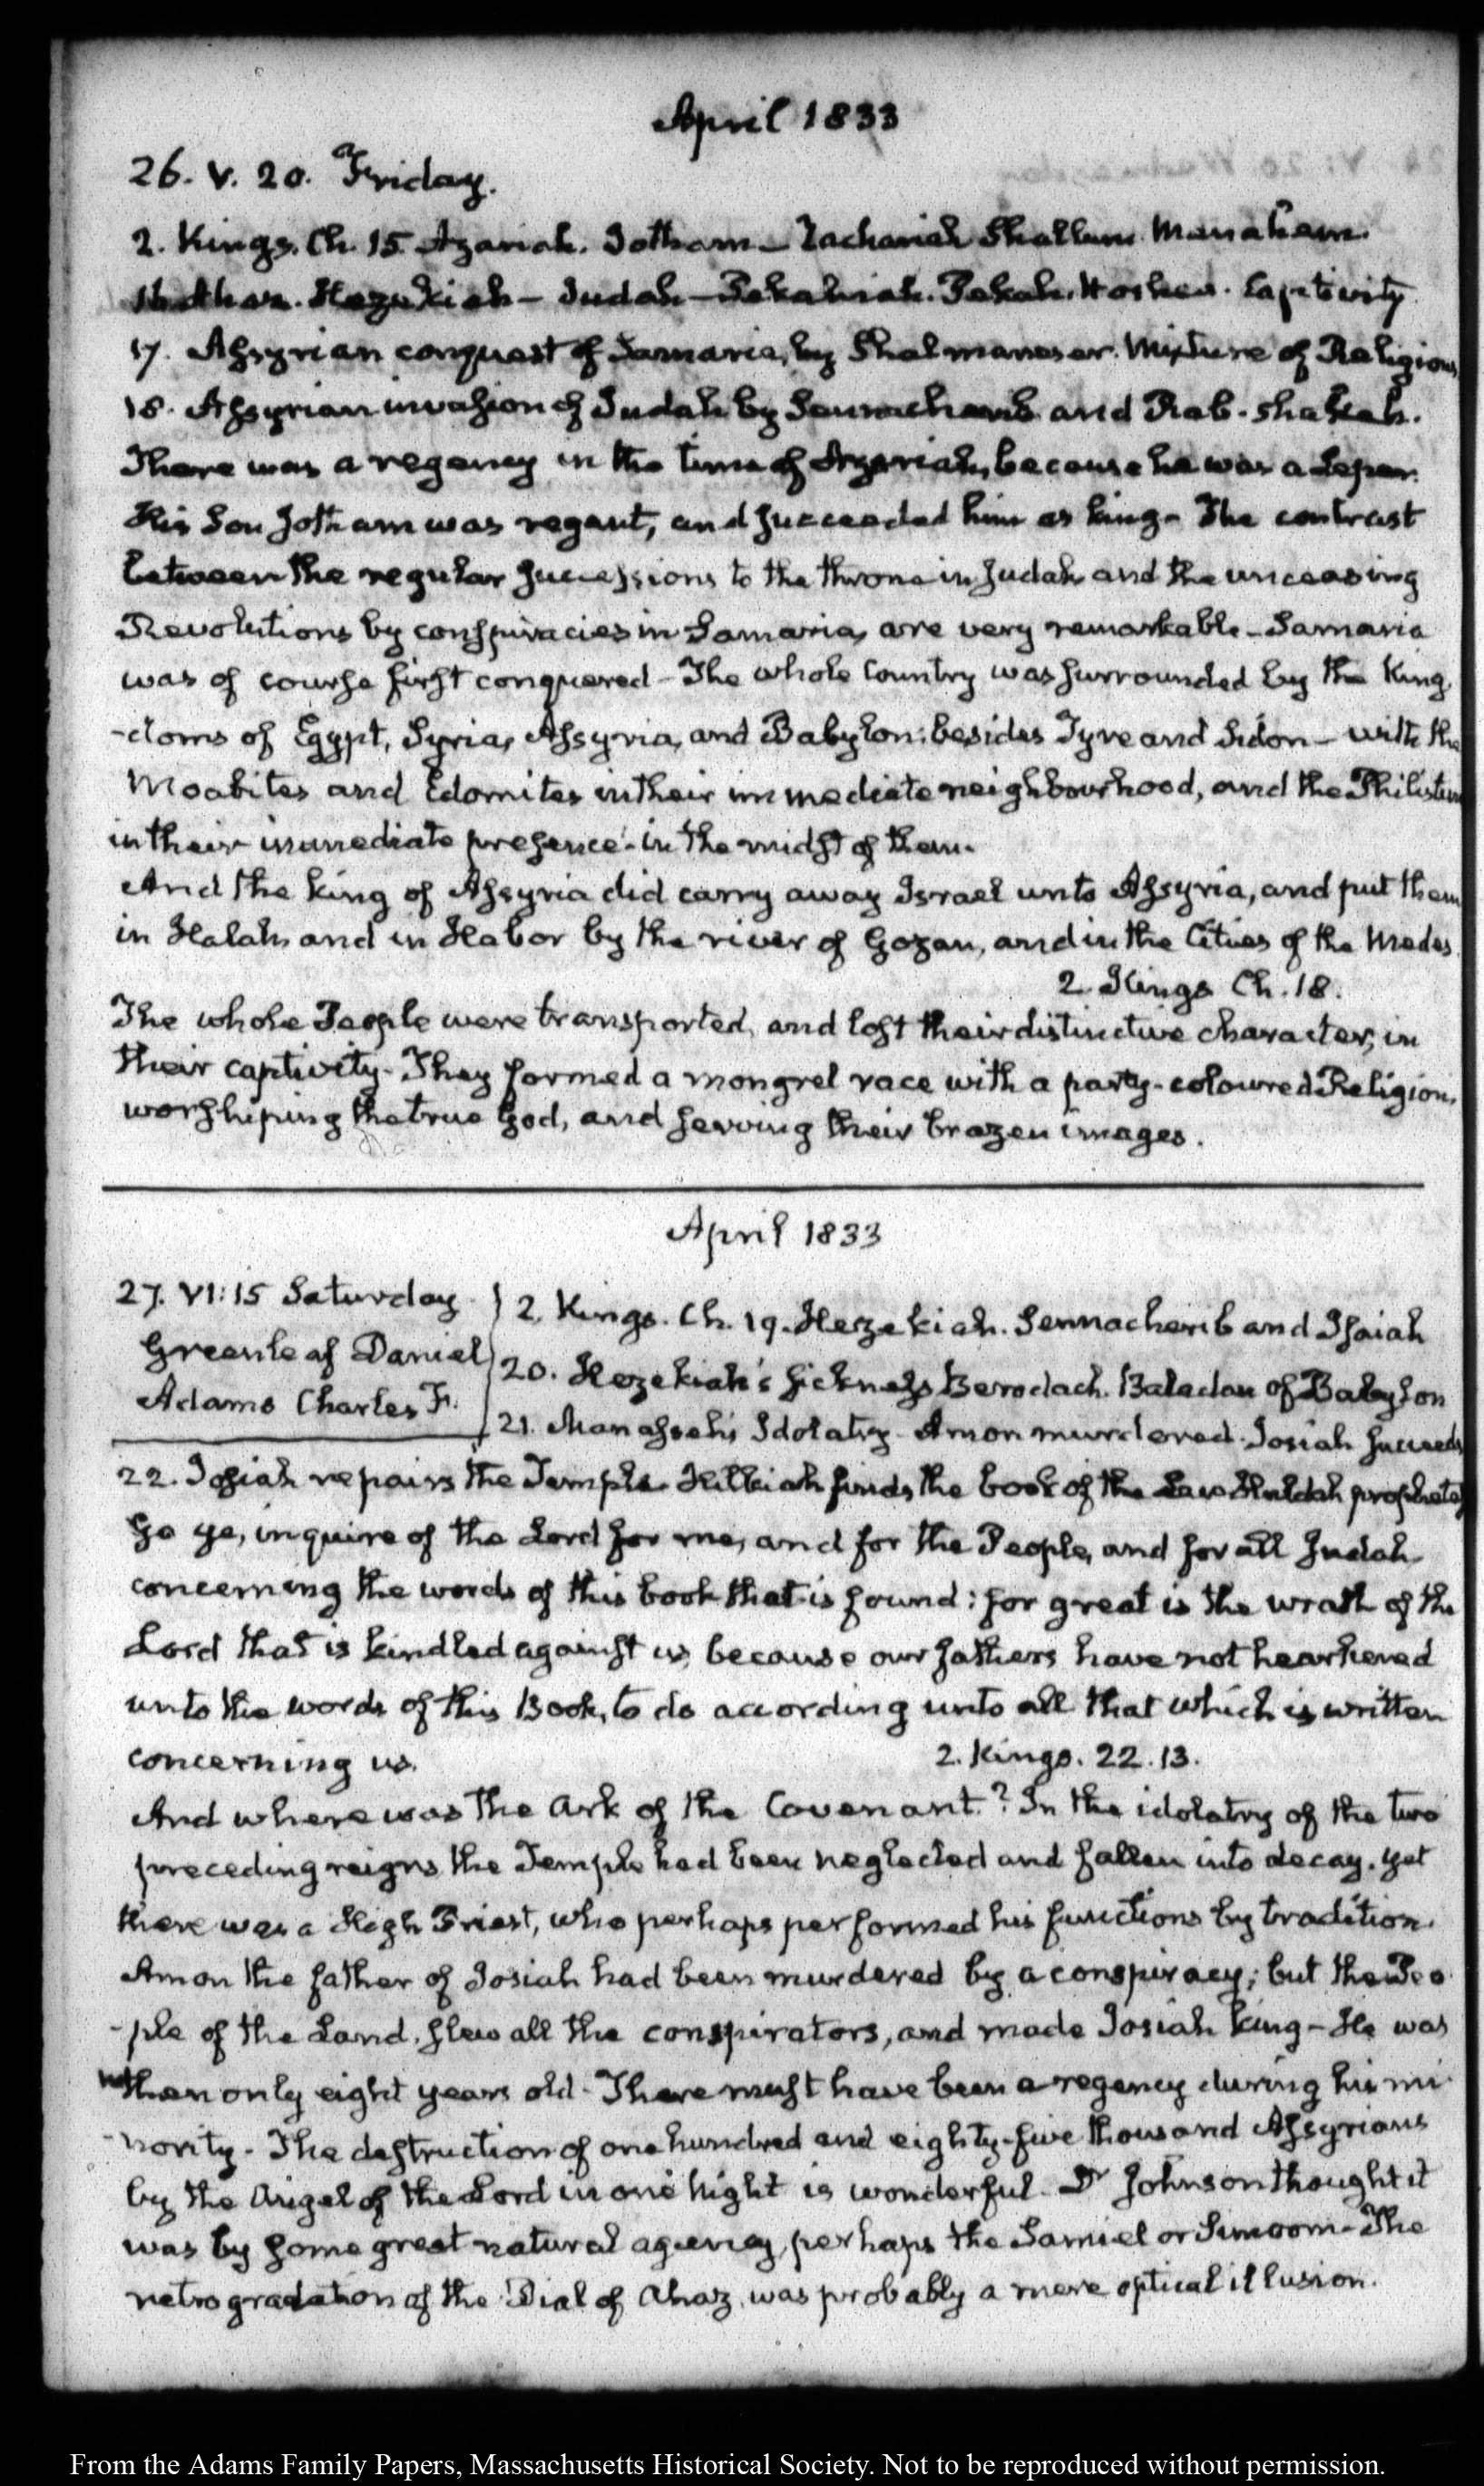 April 1833
26. V. 20. Friday.
2. Kings. Ch. 15. Azariah. Jotham — Zachariah Shallum. Manahem.
16 Ahaz. Hezekiah — Judah — Pekahiah. Pekah. Hoshea. Captivity
17. Assyrian conquest of Samaria, by Shalmaneser. Mixture of Religions
18. Assyrian invasion of Judah by Sennacherib and Rab-shakeh.
There was a regency in the time of Azariah, because he was a Leper.
His Son Jotham was regent, and succeeded him as king — The contrast
between the regular successions to the throne in Judah and the unceasing
Revolutions by conspiracies in Samaria, are very remarkable — Samaria
was of course first conquered — The whole Country was surrounded by the King
-doms of Egypt, Syria, Assyria, and Babylon; besides Tyre and Sidon — with the
Moabites and Edomites in their immediate neighbourhood, and the Philistines
in their immediate presence in the midst of them.
And the king of Assyria did carry away Israel unto Assyria, and put them
in Halah and in Habor by the river of Gozan, and in the Cities of the Medes.
2 Kings Ch. 18.
The whole People were transported, and lost their distinctive character, in
their captivity — They formed a mongrel race with a party-coloured Religion,
worshiping the true God, and serving their brazen images.
April 1833
27. VI:15 Saturday
Greenleaf Daniel
Adams Charles F.
2. Kings. Ch. 19. Hezekiah. Sennacherib and Isaiah
20. Hezekiah's sickness Berodach. Baladan of Babylon
21. Manasseh's Idolatry. Amon murdered. Josiah succeeds
22. Josiah repairs the Temple. Hilkiah finds the book of the Law Huldah prophetess
Go ye, inquire of the Lord for me, and for the People, and for all Judah
concerning the words of this book that is found: for great is the wrath of the
Lord that is kindled against us, because our fathers have not hearkened
unto the words of this Book, to do according unto all that which is written
concerning us. 2. Kings. 22. 13.
And where was the Ark of the Covenant? In the idolatry of the two
preceding reigns the Temple had been neglected and fallen into decay. yet
there was a High Priest, who perhaps performed his functions by tradition.
Amon the father of Josiah had been murdered by a conspiracy; but the Peo
-ple of the Land, slew all the conspirators, and made Josiah king — He was
then only eight years old — There must have been a regency during his mi
-nority — The destruction of one hundred and eighty-five thousand Assyrians
by the Angel of the Lord in one Night is wonderful. Dr Johnson thought it
was by some great natural agency, perhaps the Samiel or Simoom — The
retrogradation of the Dial of Ahaz, was probably a mere optical illusion.
From the Adams Family Papers, Massachusetts Historical Society. Not to be reproduced without permission.